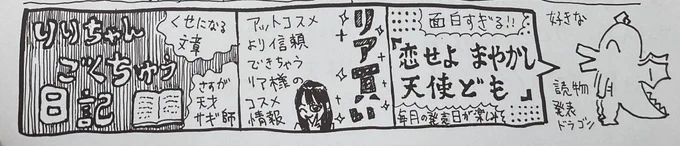 好きな
読物
発表
ドラゴン
面白すぎる!!
『恋せよ まやかし
天使ども』
毎月の発売日が楽しみで
リア買い
アットコスメ
より信頼
できちゃう
リア様の
コスメ
情報
りりちゃん
ごくちゅう
日記
くせになる
文章
さすが
天才
サギ師